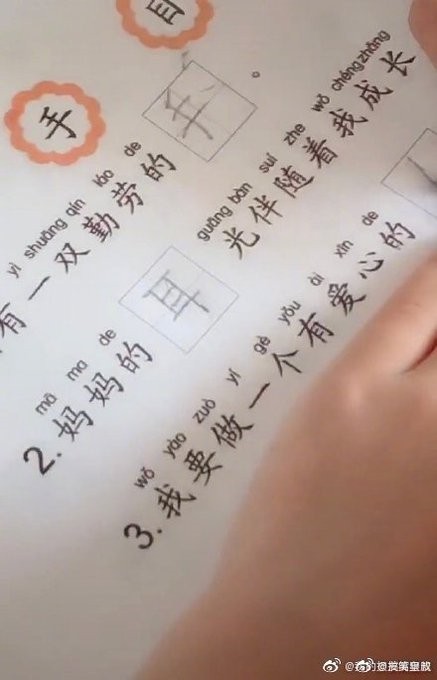 手
yì shuāng qín láo de
有一双勤劳的 手 。
mā ma de guāng bàn suí zhe wǒ chéng zhǎng
2. 妈妈的 耳 光伴随着我成长
wǒ yào zuò yí gè yǒu ài xīn de
3. 我要做一个有爱心的